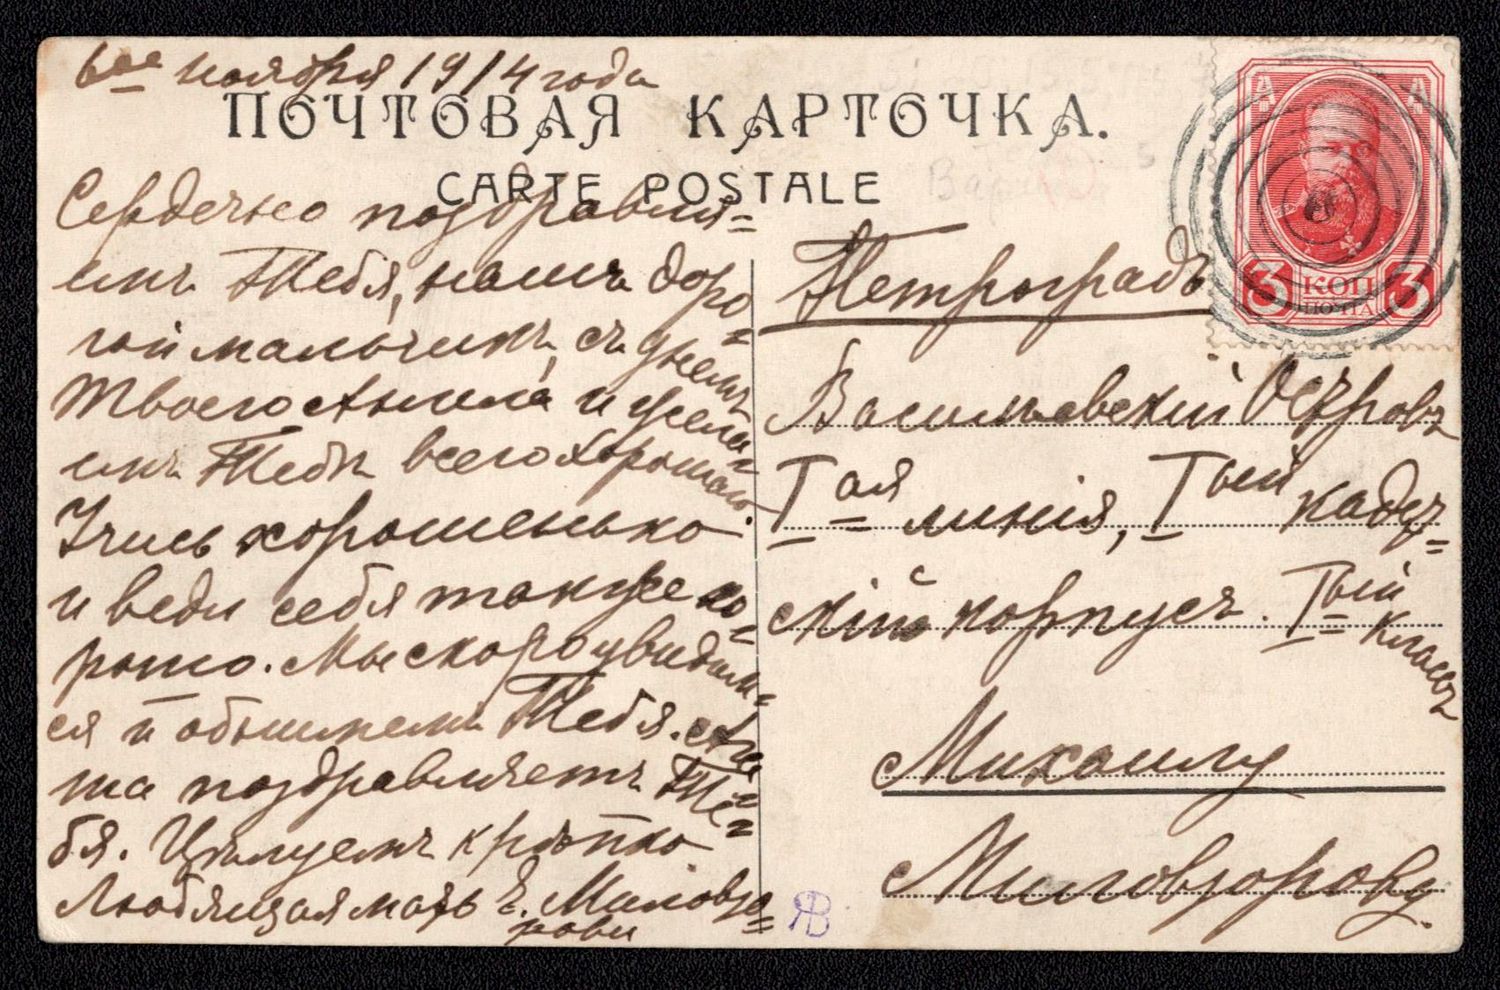 6ое ноября 1914 года
ПОЧТОВАЯ КАРТОЧКА.
CARTE POSTALE
Сердечно поздравля=
емъ Тебя, нашъ доро=
гой мальчикъ, съ днемъ
Твоего Ангела и желa=
емъ Тебѣ всего хорошаго.
Учись хорошенько
и веди себя также хо=
рошо. Мы скоро увидим=
ся и обнимемъ Тебя.
та поздравляетъ Те=
бя. Цѣлуемъ крѣпко.
Любящая мать Е. Миловзо=
рова
Петроградъ
Васильевский Островъ
Iая линія, Iый кадет=
скій корпусъ. Iый
классъ
Михаилу
Миловзорову.
3 КОП 3
ПОЧТА
ЯВ